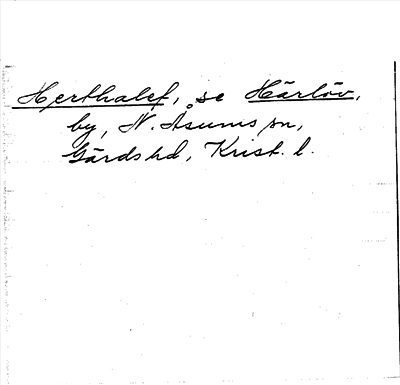 Hjerthalef, se Härlöv,
by, N. Åsums sn,
Gärds hd, Krist. l.